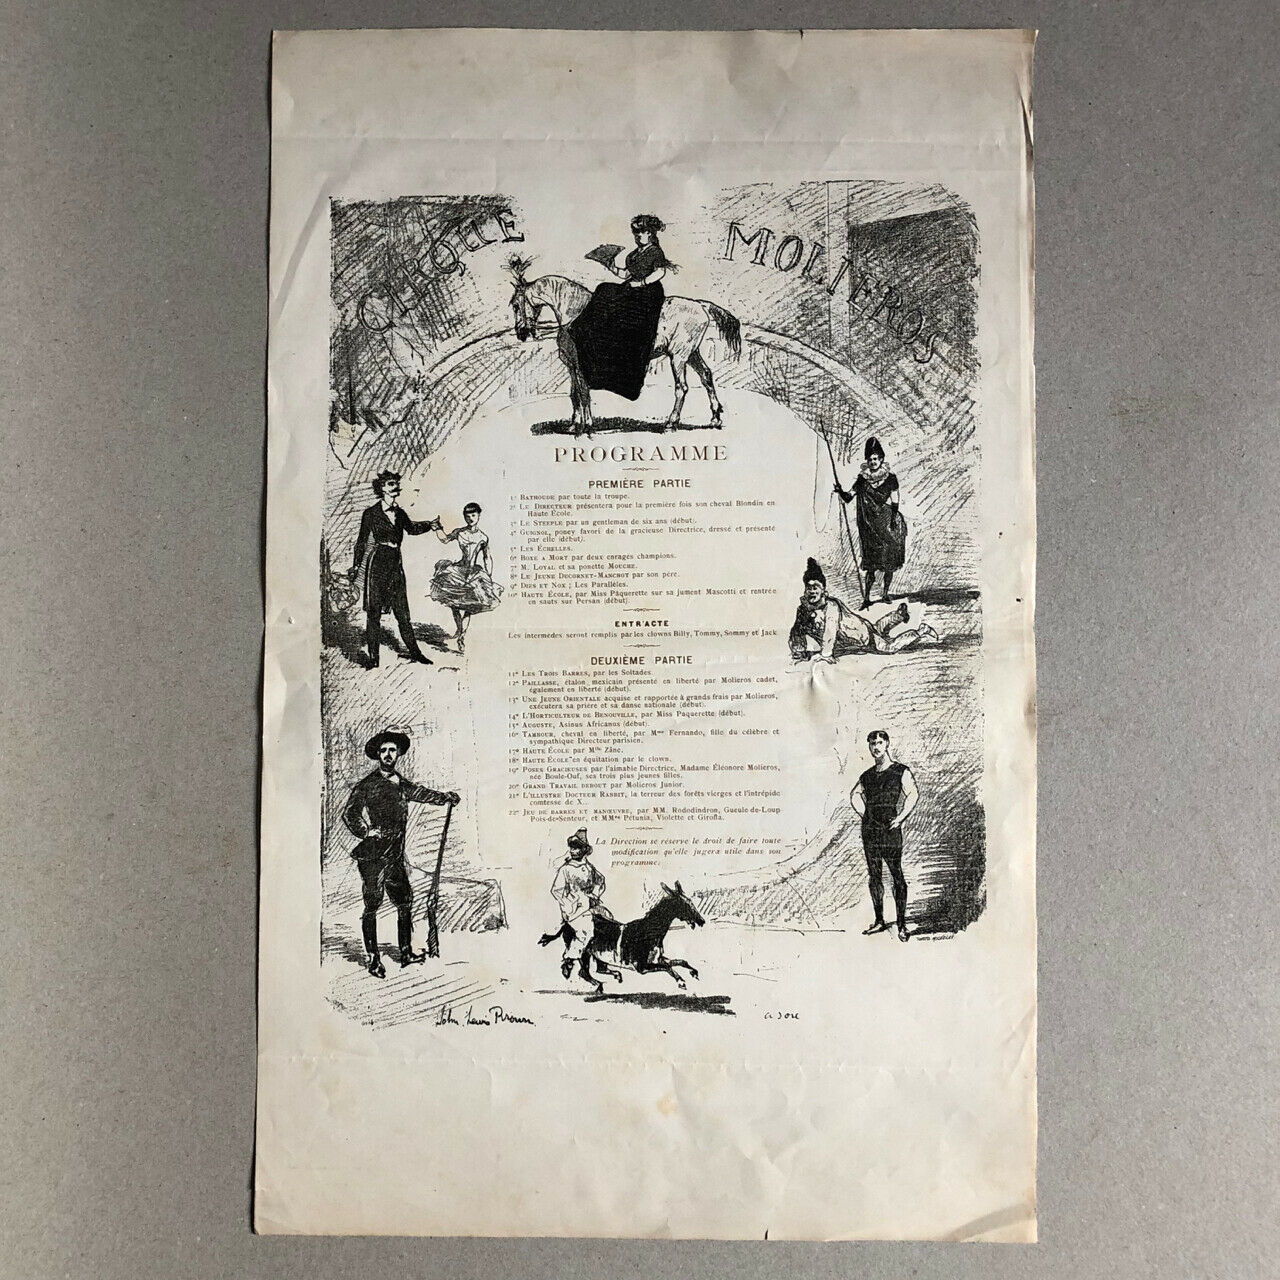 CIRQUE MOLIEROS
PROGRAMME
PREMIÈRE PARTIE
1° BATHOUDE par toute la troupe.
2° LE DIRECTEUR présentera pour la première fois son cheval Blondin en
Haute École.
3° LE STEEPLE par un gentleman de six ans (début).
4° GUIGNOL, poney favori de la gracieuse Directrice, dressé et présenté
par elle (début).
5° LES ÉCHELLES.
6° BOXE A MORT par deux enragés champions.
7° M. LOYAL et sa ponette MOUCHE.
8° LE JEUNE DUCORNET-MANCHOT par son père.
9° DIES ET NOX ; LES PARALLÈLES.
10° HAUTE ÉCOLE, par Miss Pâquerette sur sa jument Mascotti et rentrée
en sauts sur Persan (début).
ENTR'ACTE
Les intermèdes seront remplis par les clowns Billy, Tommy, Sommy et Jack
DEUXIÈME PARTIE
11° LES TROIS BARRES, par les Soltades.
12° PAILLASSE, étalon mexicain présenté en liberté par Molieros cadet,
également en liberté (début).
13° UNE JEUNE ORIENTALE acquise et rapportée à grands frais par Molieros,
exécutera sa prière et sa danse nationale (début).
14° L'HORTICULTEUR DE BENOUVILLE, par Miss Paquerette (début).
15° AUGUSTE, Asinus Africanus (début).
16° TAMBOUR, cheval en liberté, par Mme Fernando, fille du célèbre et
sympathique Directeur parisien.
17° HAUTE ÉCOLE par Mlle Zâne.
18° HAUTE ÉCOLE en équitation par le clown.
19° POSES GRACIEUSES par l'aimable Directrice, Madame Éléonore Molieros,
née Boule-Ouf, ses trois plus jeunes filles.
20° GRAND TRAVAIL DEBOUT par Molieros Junior.
21° L'ILLUSTRE DOCTEUR RABBIT, la terreur des forêts vierges et l'intrépide
comtesse de X...
22° JEU DE BARRES ET MANŒUVRE, par MM. Rododindron, Gueule-de-Loup
Pois-de-Senteur, et MMmes Pétunia, Violette et Girofla.
La Direction se réserve le droit de faire toute
modification qu'elle jugera utile dans son
programme.
John Lewis Brown